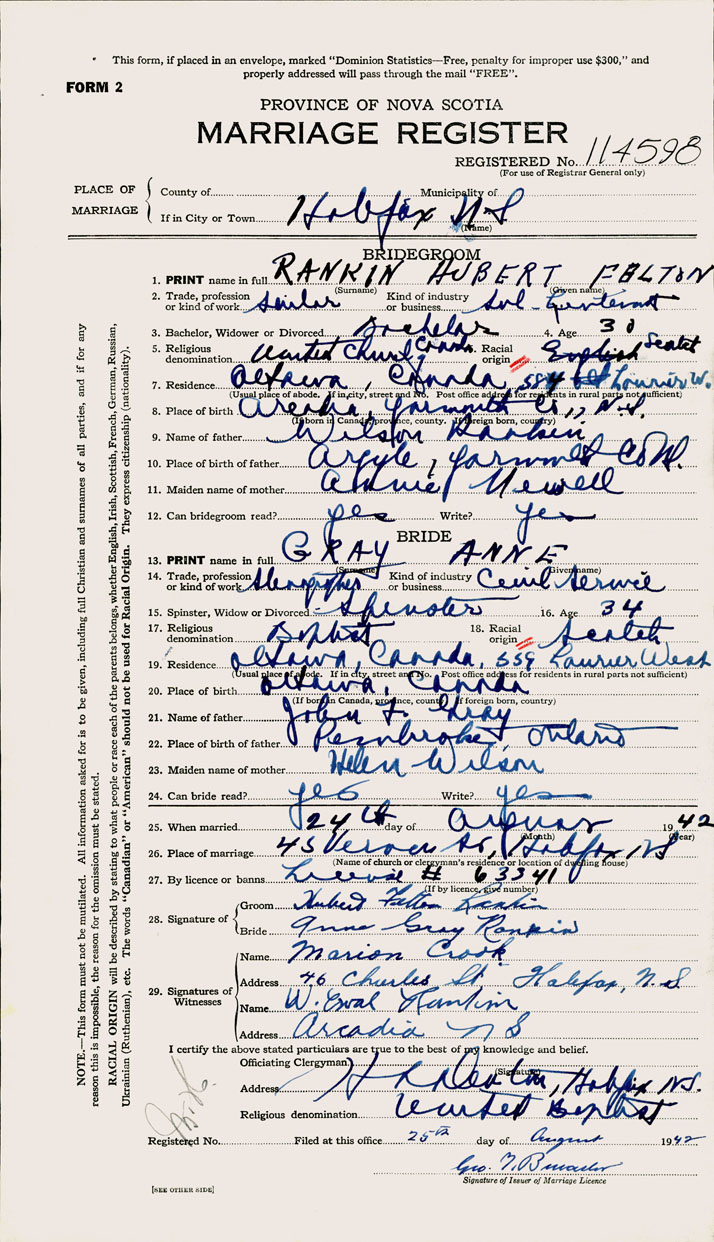 This form, if placed in an envelope, marked "Dominion Statistics—Free, penalty for improper use $300," and
properly addressed will pass through the mail "FREE".
FORM 2
PROVINCE OF NOVA SCOTIA
MARRIAGE REGISTER
REGISTERED No. 114598
(For use of Registrar General only)
PLACE OF MARRIAGE
County of Municipality of
If in City or Town Halifax N S
(Name)
BRIDEGROOM
1. PRINT name in full RANKIN HUBERT FELTON
(Surname) (Given name)
2. Trade, profession or kind of work Sailor Kind of industry or business Sub-Lieutenant
3. Bachelor, Widower or Divorced Bachelor 4. Age 30
5. Religious denomination United Church Canada Racial origin English Scotch
7. Residence Ottawa, Canada, Laurier W.
(Usual place of abode. If in city, street and No. Post office address for residents in rural parts not sufficient)
8. Place of birth Arcadia, Yarmouth Co., N.S.
(If born in Canada, province, county. If foreign born, country)
9. Name of father Wilson Rankin
10. Place of birth of father Argyle, Yarmouth Co
11. Maiden name of mother Annie Newell
12. Can bridegroom read? yes Write? yes
BRIDE
13. PRINT name in full GRAY ANNE
(Surname) (Given name)
14. Trade, profession or kind of work Stenographer Kind of industry or business Civil Service
15. Spinster, Widow or Divorced Spinster 16. Age 34
17. Religious denomination Baptist 18. Racial origin Scotch
19. Residence Ottawa, Canada, 359 Laurier West
(Usual place of abode. If in city, street and No. Post office address for residents in rural parts not sufficient)
20. Place of birth Ottawa, Canada
(If born in Canada, province, county. If foreign born, country)
21. Name of father John F. Gray
22. Place of birth of father Pembroke, Ontario
23. Maiden name of mother Helen Wilson
24. Can bride read? yes Write? yes
25. When married 24th day of August 1942
(Month) (Year)
26. Place of marriage 45 Vernon St, Halifax, NS
(Name of church or clergyman's residence or location of dwelling house)
27. By licence or banns Licence # 63341
(If by licence, give number)
28. Signature of
Groom Hubert Felton Rankin
Bride Anne Gray Rankin
29. Signatures of Witnesses
Name Marion Crook
Address 46 Charles St. Halifax, N.S
Name W. Rankin
Address Arcadia N S
I certify the above stated particulars are true to the best of my knowledge and belief.
Officiating Clergyman
(Signature)
Address Halifax NS.
Religious denomination United Baptist
Registered No. Filed at this office 25th day of August 1942
Geo.
Signature of Issuer of Marriage Licence
[SEE OTHER SIDE]
NOTE.—This form must not be mutilated. All information asked for is to be given, including full Christian and surnames of all parties, and if for any
reason this is impossible, the reason for the omission must be stated.
RACIAL ORIGIN will be described by stating to what people or race each of the parents belongs, whether English, Irish, Scottish, French, German, Russian,
Ukrainian (Ruthenian), etc. The words "Canadian" or "American" should not be used for Racial Origin. They express citizenship (nationality).